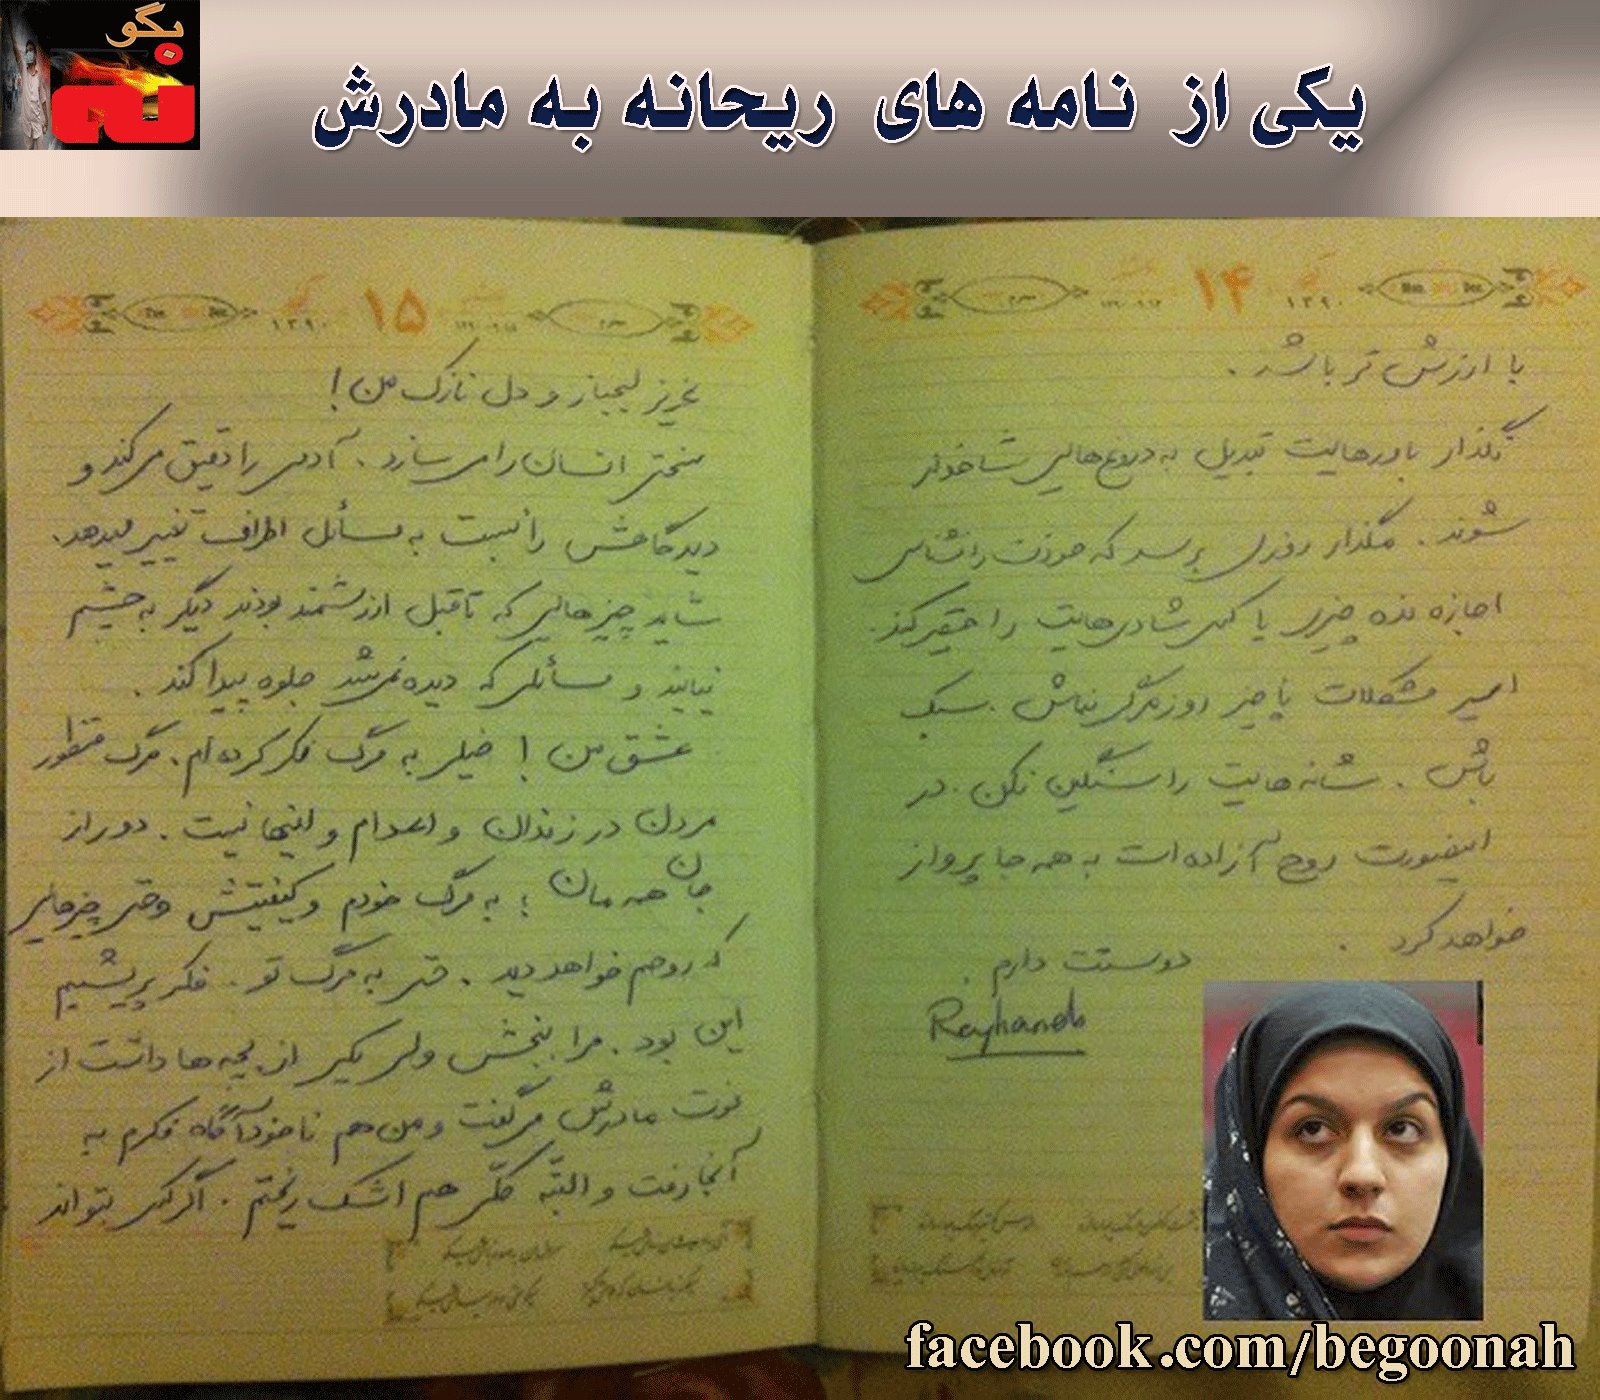 بگو
نه
یکی از نامه های ریحانه به مادرش
۱۴
۱۳۹۰
با ارزش تر باشد.
نگذار باورهایت تبدیل به دروغ‌هایی شاخدار
شوند. مگذار روزی برسد که خودت را نشناسی
اجازه نده چیزی یا کسی شادی‌هایت را حقیر کند.
اسیر مشکلات ناچیز روزمرگی نباش. سبک
باش. شانه‌هایت را سنگین نکن. در
اینصورت روح آزاده‌ات به همه جا پرواز
خواهد کرد.
دوستت دارم.
Reyhaneh
۱۵
۱۳۹۰
عزیز لجباز و دل نازک من!
سختی انسان را می سازد. آدمی را دقیق می‌کند و
دیدگاهش را نسبت به مسائل اطراف تغییر میدهد.
شاید چیزهایی که تا قبل ارزشمند بودند دیگر به چشم
نیایند و مسائلی که دیده نمی‌شد جلوه پیدا کند.
عشق من! خیلی به مرگ فکر کرده‌ام. مرگ منظور
مردن در زندان و اعدام و اینها نیست. دور از
جان همه‌مان؛ به مرگ خودم و کیفیتش وقتی چیزهایی
که روحم خواهد دید. حتی به مرگ تو. فکر پریشیم
این بود. مرا ببخش ولی یکی از بچه‌ها داشت از
فوت مادرش می‌گفت و من هم ناخودآگاه فکرم به
آنجا رفت و البته کلّی هم اشک ریختم. اگر کسی بتواند
facebook.com/begoonah